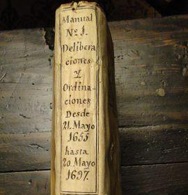 Manual
Nº. 1.
Delibera
ciones
y
Ordina
ciones
Desde
21. Mayo
1655
hasta
20. Mayo
1697.